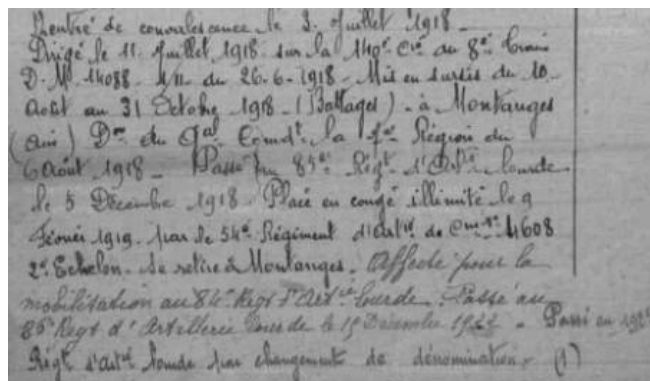 Rentré de convalescence le 2. Juillet 1918 -
Dirigé le 11. Juillet 1918 - sur la 140e Cie du 8e
D. M. 14088 - 1/11 du 26-6-1918 - Mis en sursis du 10
Août au 31 Octobre 1918 - (Battages) - à Montanges
(Ain) Don du Gal Comdt la 7e Région du
6 Août 1918 - Passé au 85e Régt d'Artie lourde
le 5 Décembre 1918 - Placé en congé illimité le 9
Février 1919 - par le 54e Régiment d'Artie de Cgne No 4608
2e Echelon - se retire à Montanges. Affecté pour la
mobilisation au 84e Regt d'Artie lourde. Passé au
85e Regt d'Artillerie lourde le Décembre - Passé au
Régt d'Artie lourde par changement de dénomination - (1)